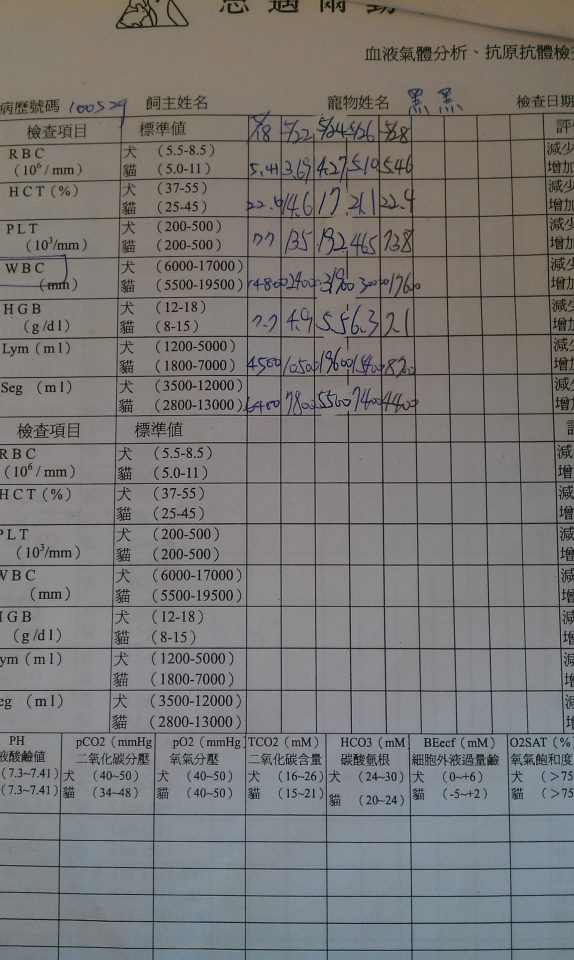 血液氣體分析、抗原抗體檢
病歷號碼 100529 飼主姓名 寵物姓名 黑黑 檢查日期
檢查項目 標準值 5/18 5/22 5/24 5/26 5/28 評
RBC 犬 (5.5-8.5) 減少
(10⁶/mm) 貓 (5.0-11) 5.41 3.69 4.27 5.10 5.46 增加
HCT (%) 犬 (37-55) 減少
貓 (25-45) 14.6 17 21.1 22.4 增加
PLT 犬 (200-500) 減少
(10³/mm) 貓 (200-500) 77 135 192 465 738 增加
WBC 犬 (6000-17000) 減少
(mm) 貓 (5500-19500) 14800 24000 31900 30000 17600 增加
HGB 犬 (12-18) 減少
(g/dl) 貓 (8-15) 7.7 4.9 5.5 6.3 7.1 增加
Lym (ml) 犬 (1200-5000) 減少
貓 (1800-7000) 4500 10500 19600 15400 8700 增加
Seg (ml) 犬 (3500-12000) 減少
貓 (2800-13000) 6400 7800 5500 7400 4400 增加
檢查項目 標準值
RBC 犬 (5.5-8.5) 減
(10⁶/mm) 貓 (5.0-11) 增
HCT (%) 犬 (37-55) 減
貓 (25-45) 增
PLT 犬 (200-500) 減
(10³/mm) 貓 (200-500) 增
WBC 犬 (6000-17000) 減
(mm) 貓 (5500-19500) 增
HGB 犬 (12-18) 減
(g/dl) 貓 (8-15) 增
ym (ml) 犬 (1200-5000) 減
貓 (1800-7000) 增
eg (ml) 犬 (3500-12000) 減
貓 (2800-13000) 增
PH pCO2 (mmHg pO2 (mmHg) TCO2 (mM) HCO3 (mM BEecf (mM) O2SAT (%)
液酸鹼值 二氧化碳分壓 氧氣分壓 二氧化碳含量 碳酸氫根 細胞外液過量鹼 氧氣飽和度
(7.3~7.41) 犬 (40~50) 犬 (40~50) 犬 (16~26) 犬 (24~30) 犬 (0~+6) 犬 (>75
(7.3~7.41) 貓 (34~48) 貓 (40~50) 貓 (15~21) 貓 (20~24) 貓 (-5~+2) 貓 (>75